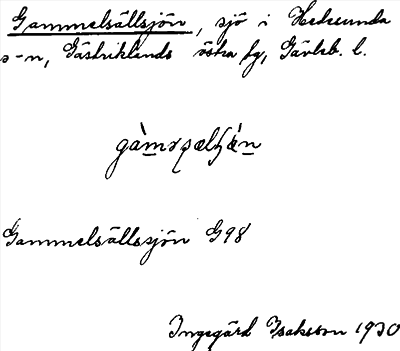 Gammelsällsjön, sjö i Hedesunda
s-n, Gästriklands östra fg, Gävleb. l.
Gammelsällssjön G98
Ingegärd Isaksson 1930